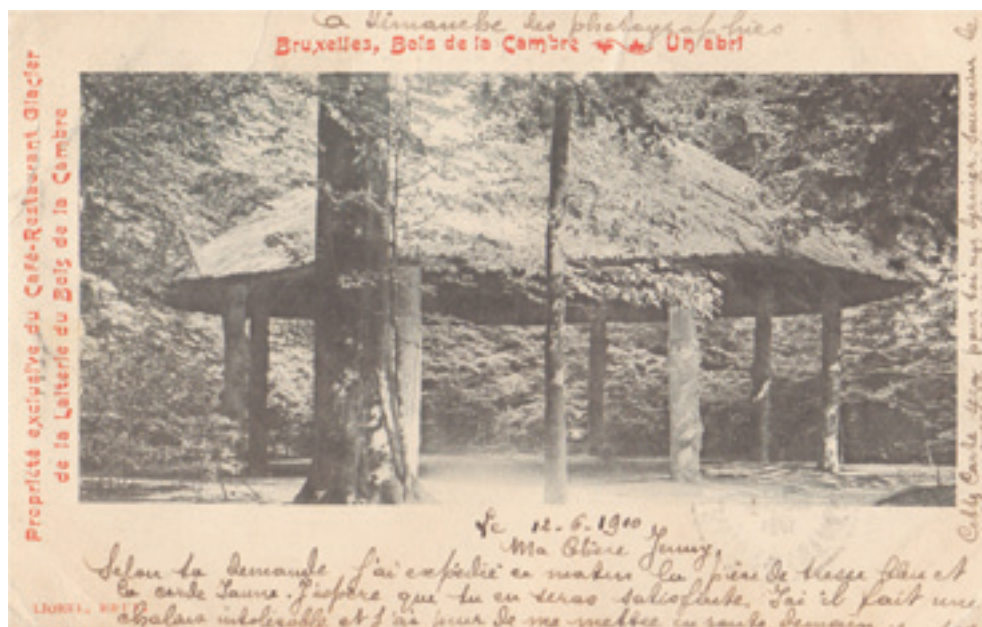 a dimanche les photographies
Bruxelles, Bois de la Cambre Un abri
Propriété exclusive du Café-Restaurant Glacier
de la Laiterie du Bois de la Cambre
Le 12-6-1910
Ma Chère Jenny,
Selon ta demande j'ai expédié ce matin la pièce de tresse bleu et
la corde Jaune. J'espère que tu en seras satisfaite. Ici il fait une
chaleur intolérable et j'ai peur de me mettre en route demain
Carte sera pour toi un dernier souvenir de